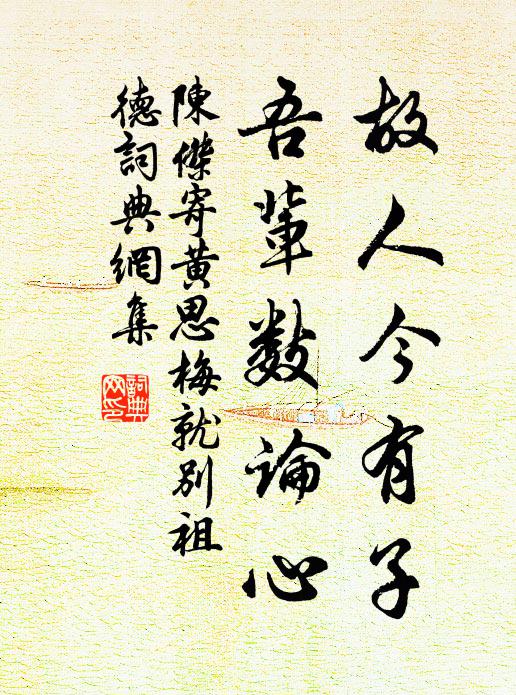 故人今有子
吾輩數論心
陳傑寄黃思梅就別祖
德詞典網集
詞典
网印